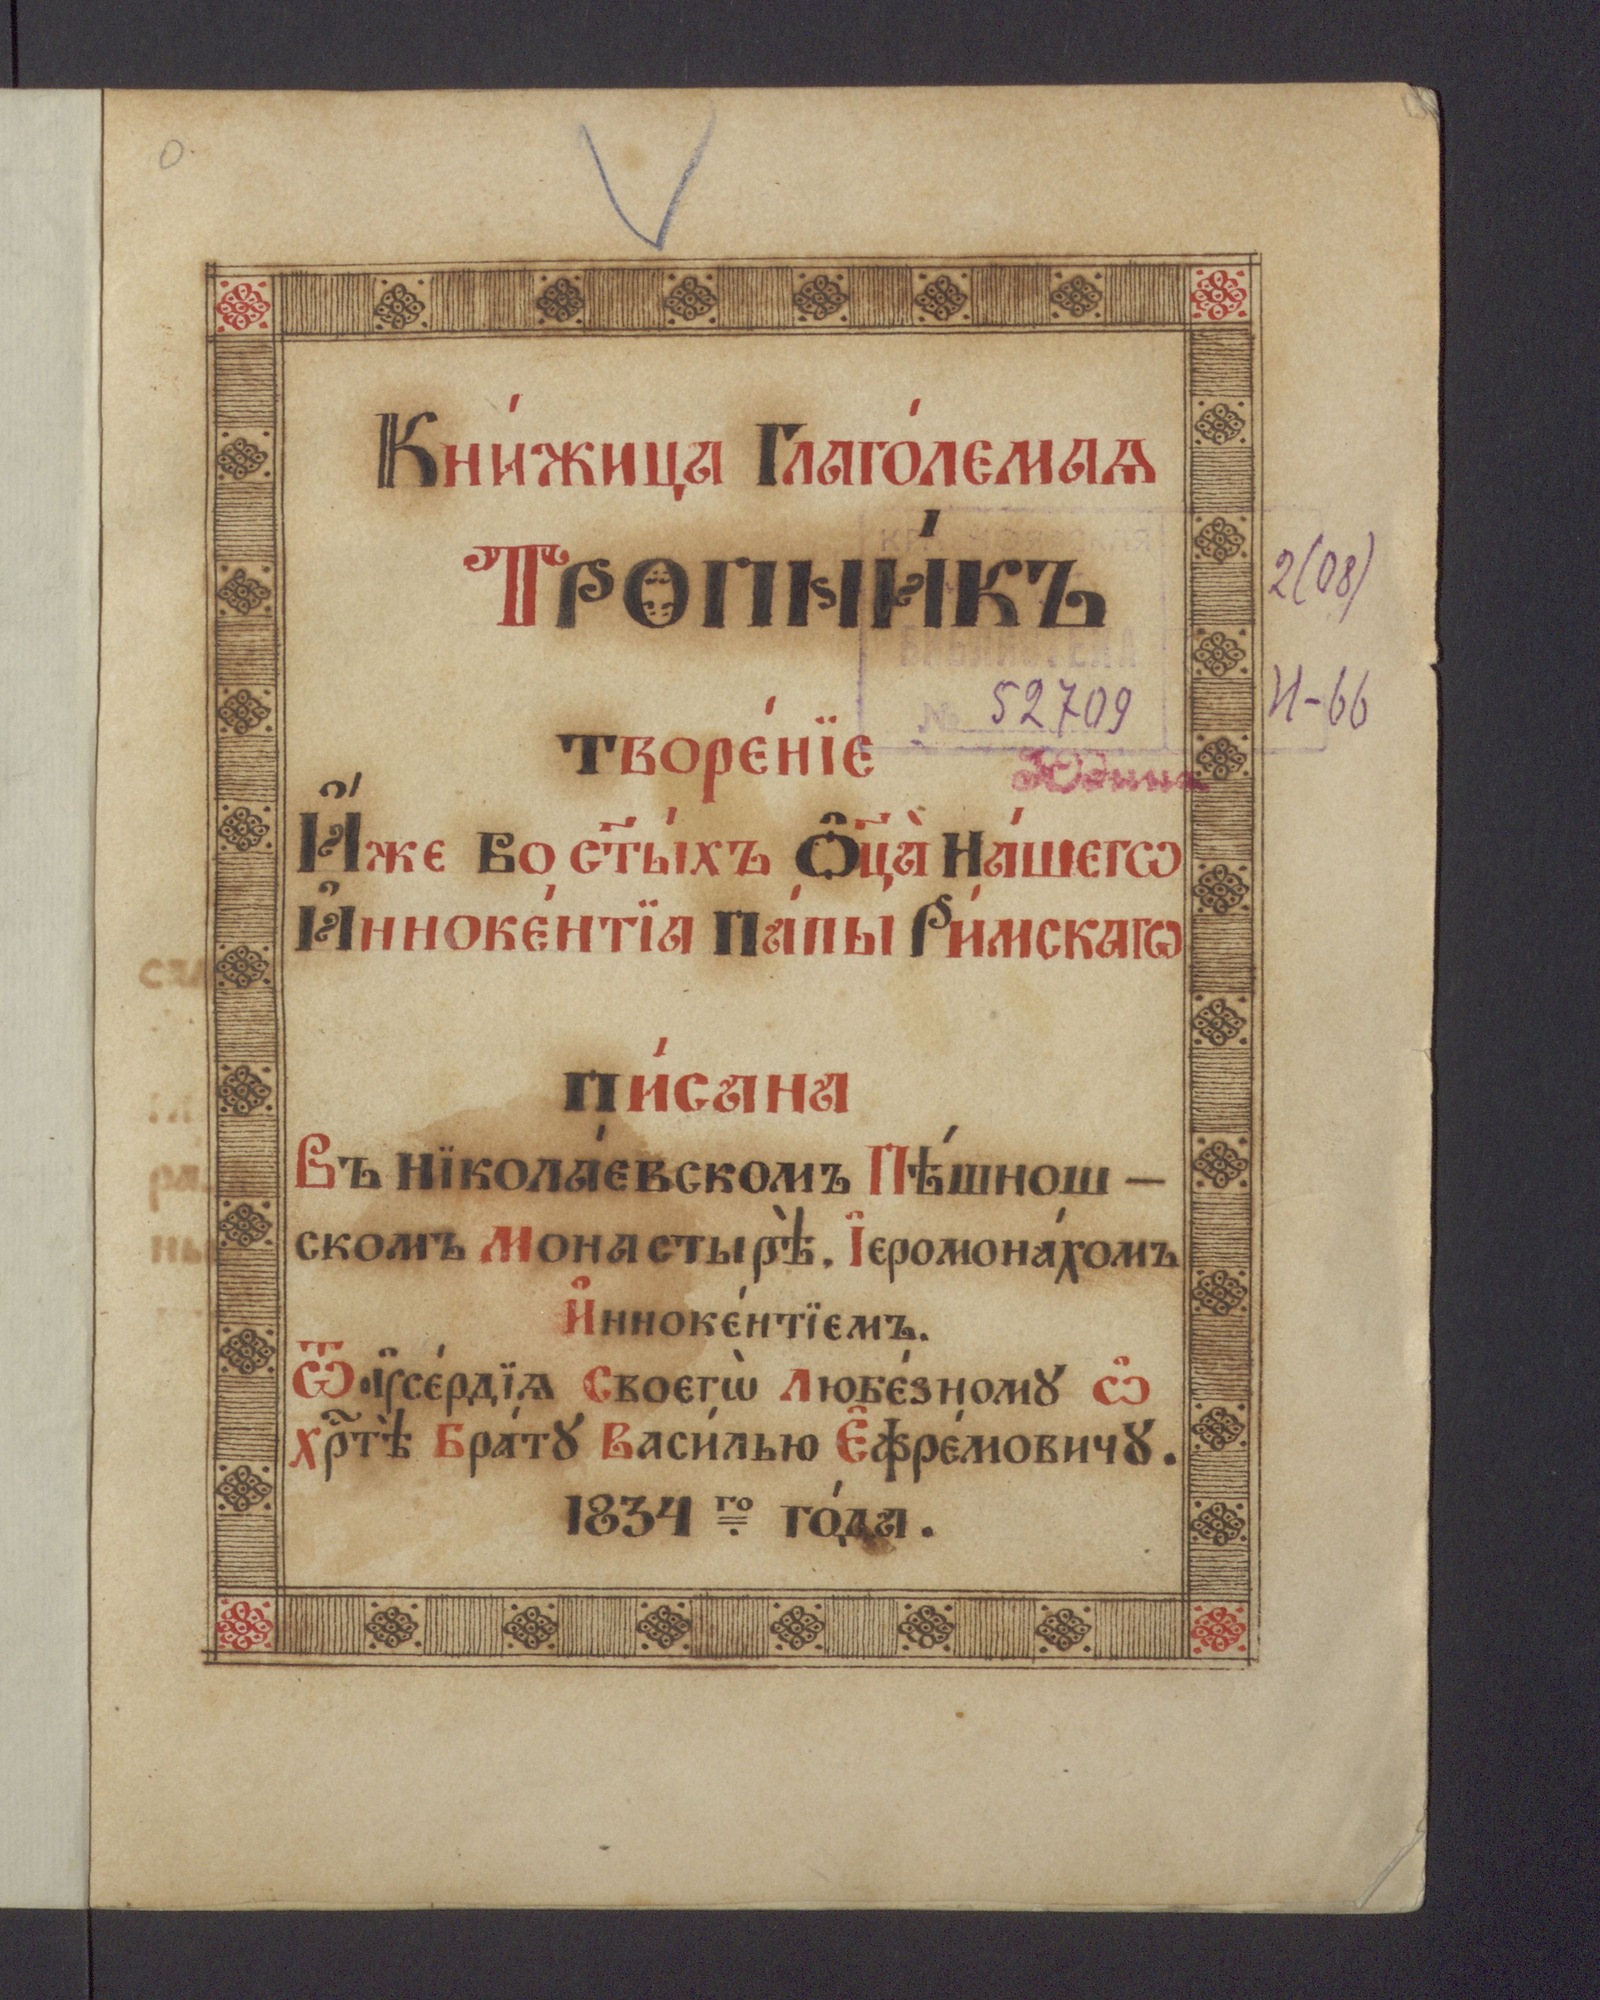 Кни́жица Глаго́лемаѧ
Тропни́къ
творе́нїе
И҆́же во ст҃ы́хъ Ѻ҆ц҃а̀ На́шегѡ
И҆нноке́нтїа Па́пы Ри́мскагѡ
пи́сана
Въ Нїкола́евскомъ Пѣ́шнош –
скомъ Монастырѣ̀, І҆еромона́хомъ
И҆нноке́нтїемъ.
Ѿ ᲂу҆се́рдїѧ Своегѡ̀ Любе́зному ѡ҆
хр҃тѣ̀ Бра́тꙋ Васи́лью Е҆фре́мовичꙋ.
1834 го го́да.
БИБЛИОТЕКА
№ 52709
Юдина
2(08)
И-66